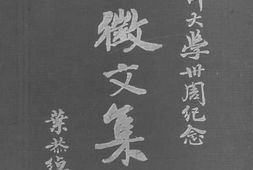 大學卅周紀念
徵文集
葉恭綽